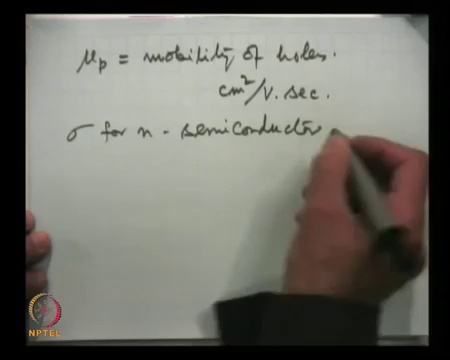 μp = mobility of holes.
cm²/V. sec.
σ for n - semiconductor
NPTEL